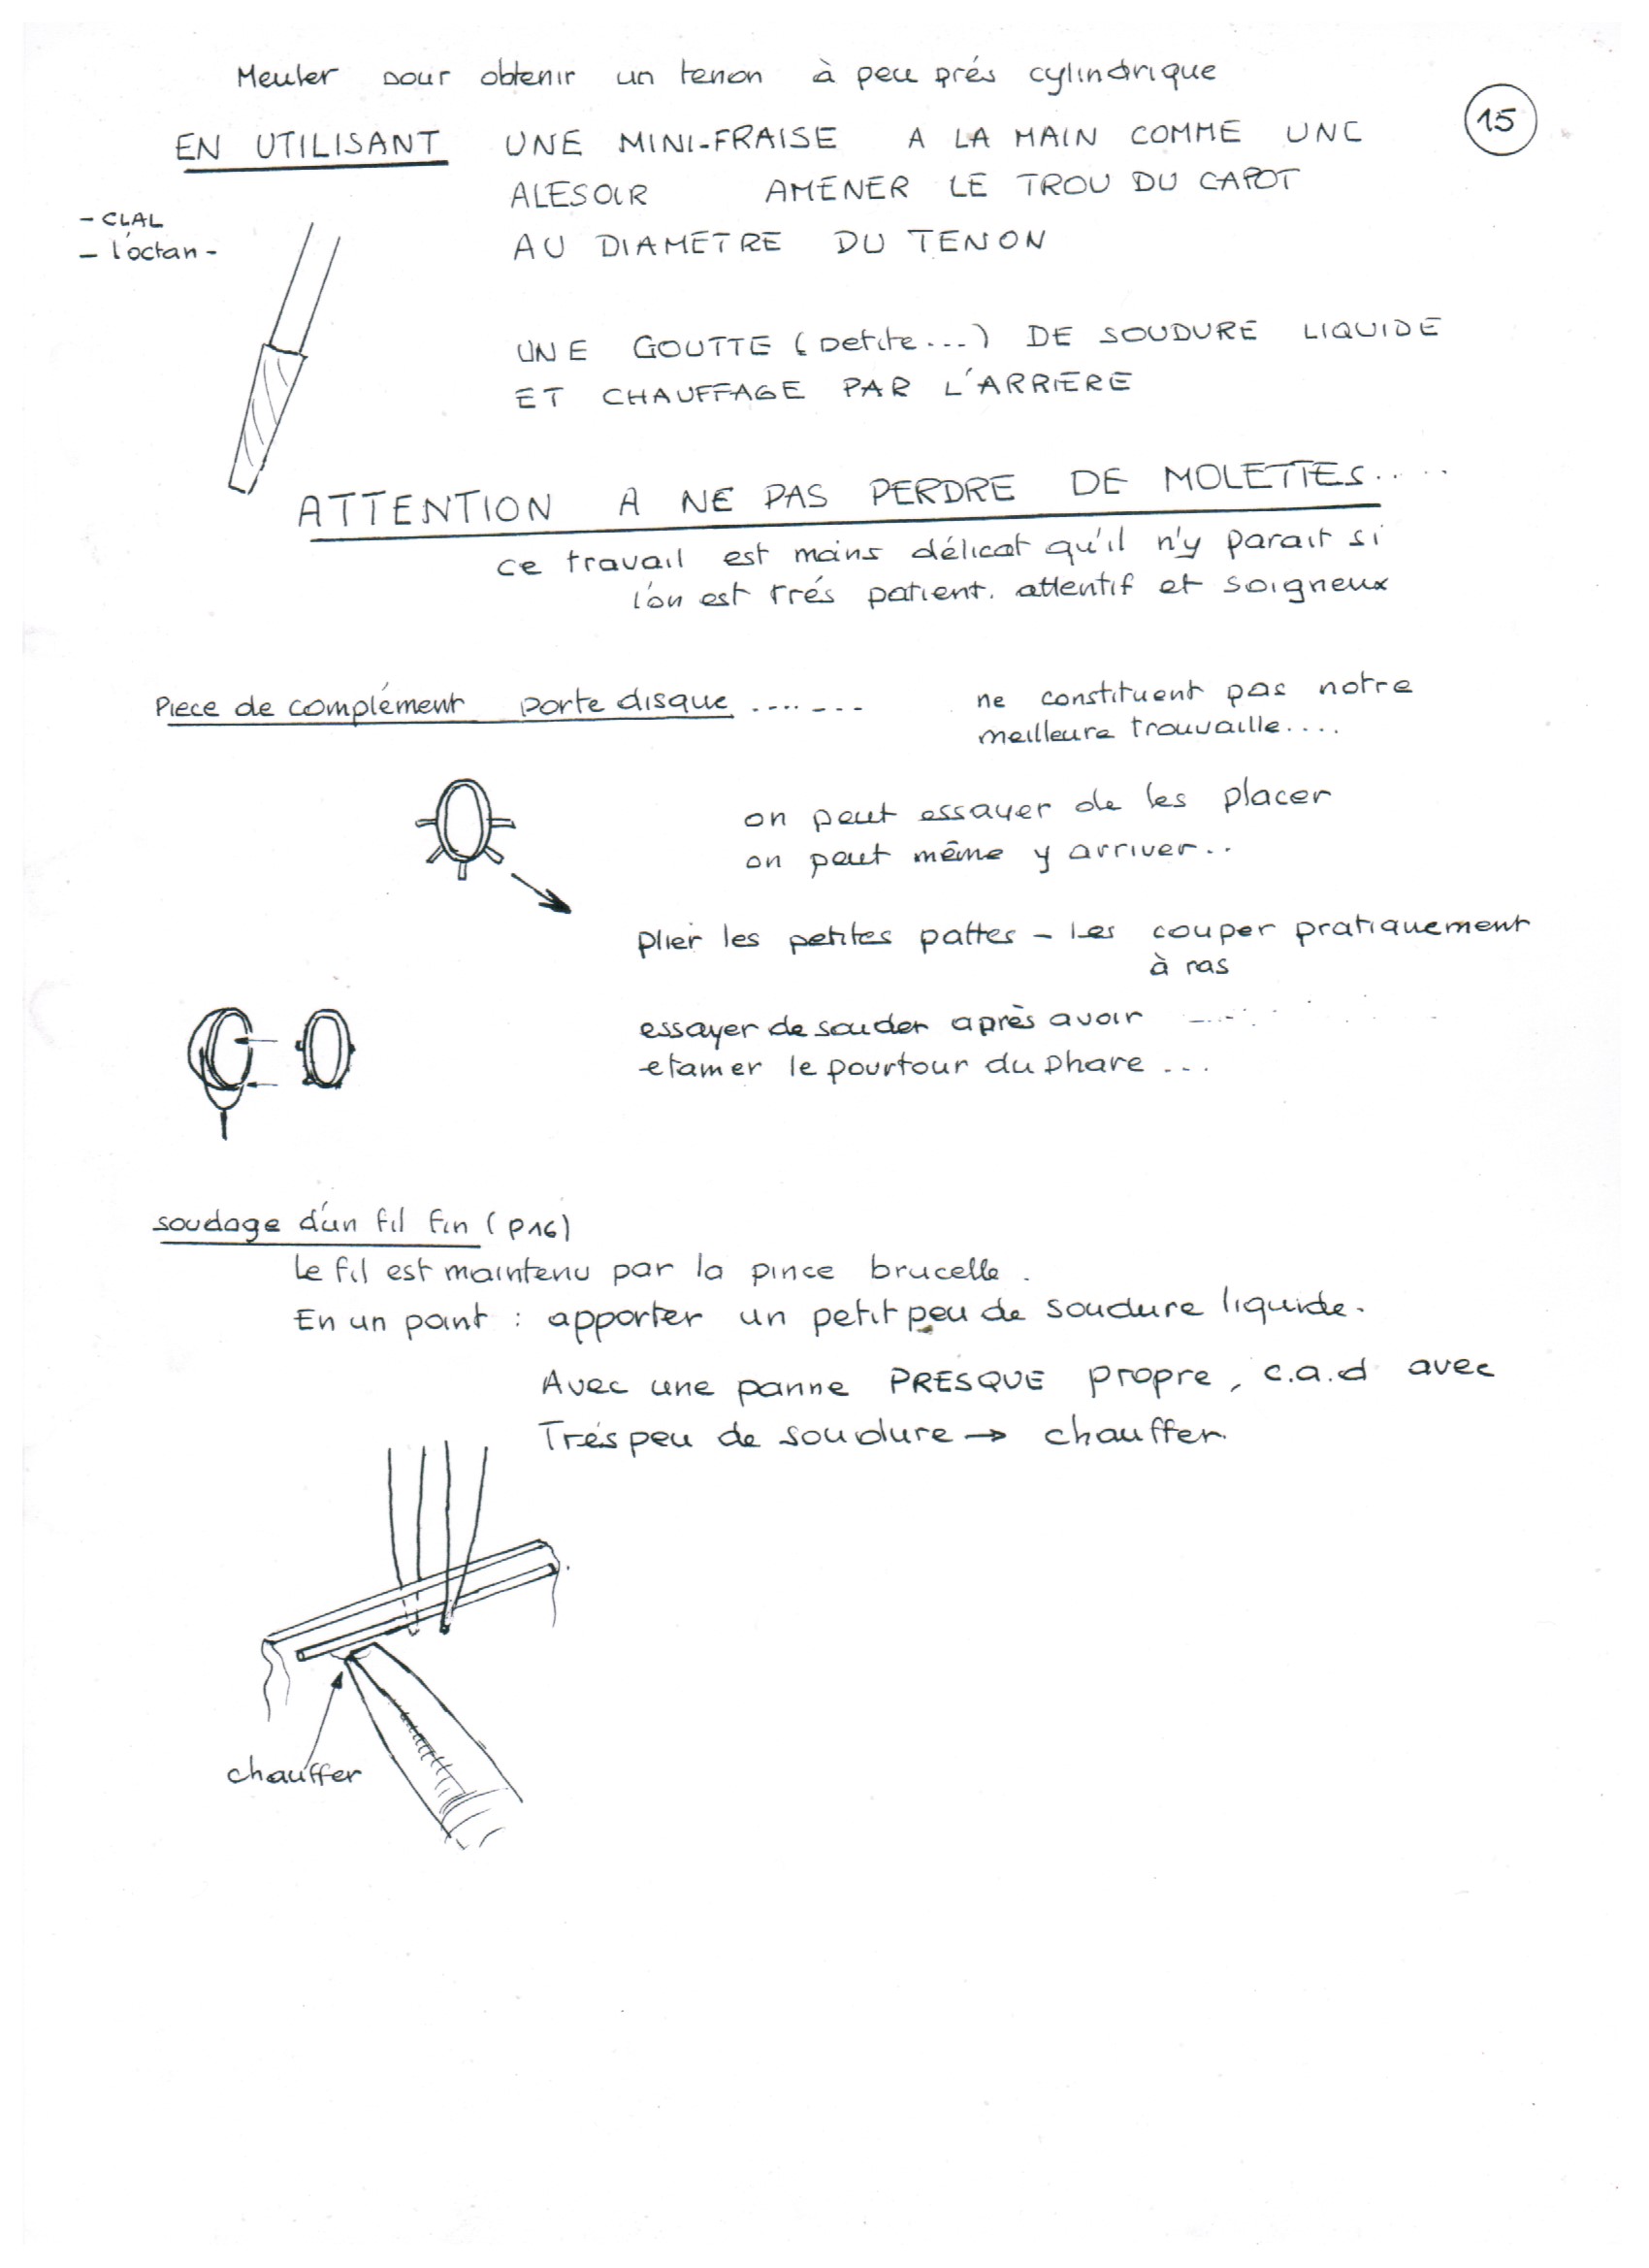 Meuler pour obtenir un tenon à peu prés cylindrique
15
EN UTILISANT UNE MINI-FRAISE A LA MAIN COMME UNE
ALESOIR AMENER LE TROU DU CAPOT
- CLAL
- l'octan -
AU DIAMETRE DU TENON
UNE GOUTTE (petite...) DE SOUDURE LIQUIDE
ET CHAUFFAGE PAR L'ARRIERE
ATTENTION A NE PAS PERDRE DE MOLETTES.....
ce travail est moins délicat qu'il n'y parait si
l'on est trés patient. attentif et soigneux
Piece de complément porte disque ....... ne constituent pas notre
meilleure trouvaille....
on peut essayer de les placer
on peut même y arriver..
plier les petites pattes - les couper pratiquement
à ras
essayer de souder après avoir
etamer le pourtour du phare ...
soudage d'un fil fin (p16)
Le fil est maintenu par la pince brucelle.
En un point : apporter un petit peu de soudure liquide.
Avec une panne PRESQUE propre, c.a.d avec
Trés peu de soudure → chauffer.
chauffer